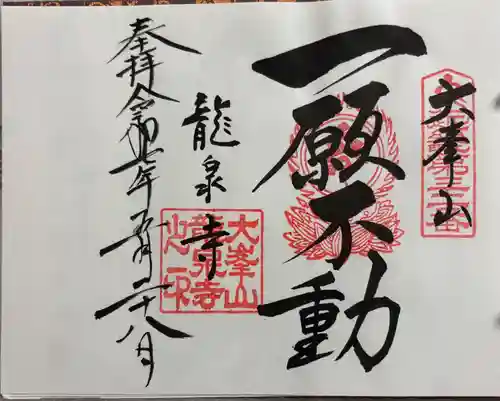 大峯山
一願不動
龍泉寺
大峯山
龍泉寺
奉拝 令和七年五月二十八日